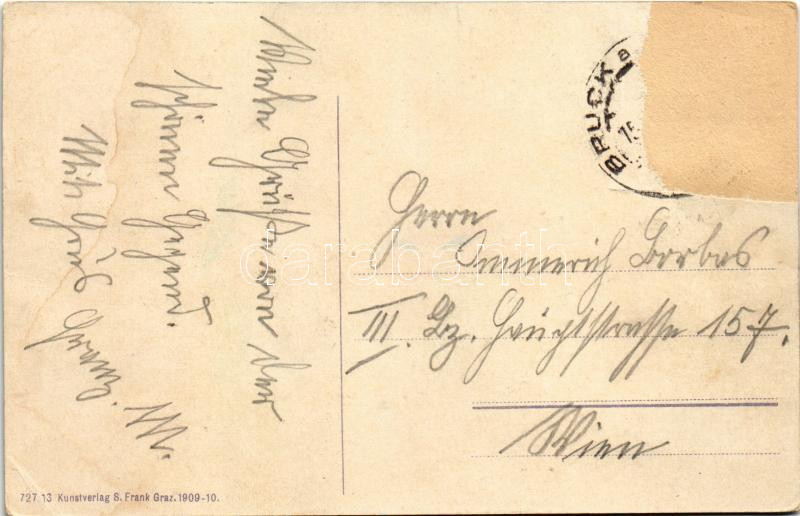 Viele Grüße von der
schönen
Mit Gruß
M.
BRUCK a
15
Herrn
Immerich Borbas
III. Bz. Hauptstrasse 157.
Wien
727 13 Kunstverlag S. Frank Graz. 1909-10.
carabanth